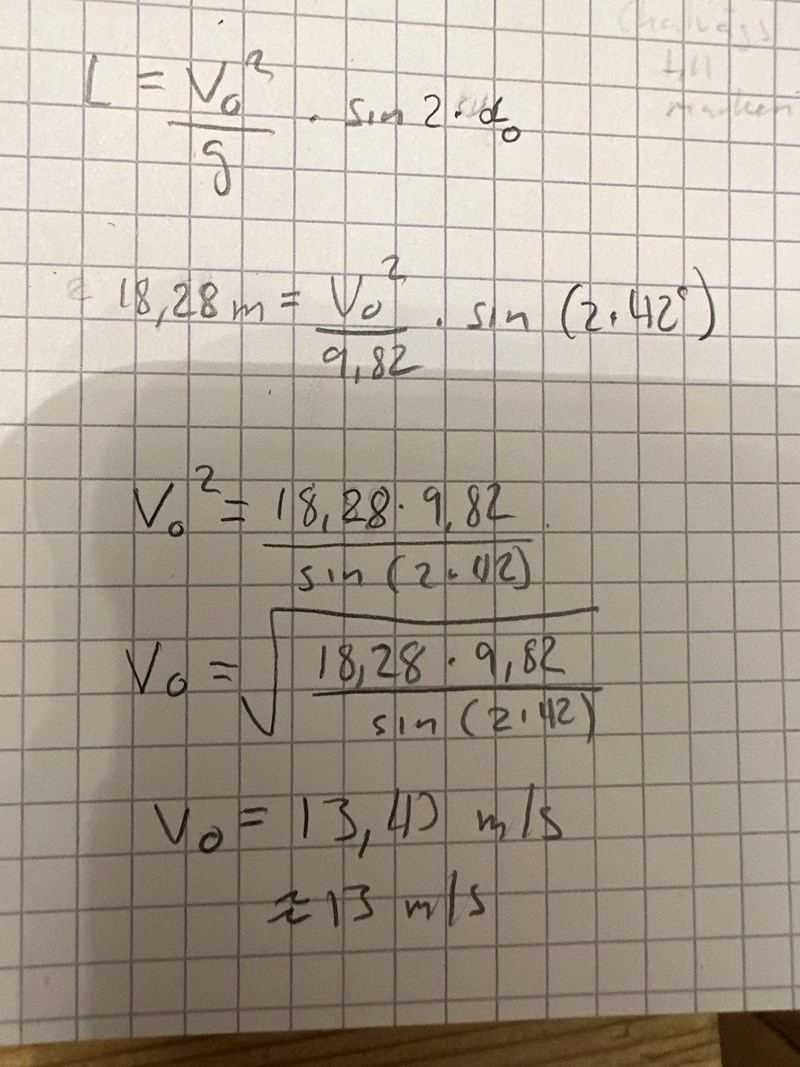 L = V₀²/g · sin 2 · α₀
18,28 m = V₀²/9,82 · sin (2·42°)
V₀² = 18,28 · 9,82 / sin (2·42)
V₀ = √(18,28 · 9,82 / sin (2·42))
V₀ = 13,43 m/s
≈ 13 m/s